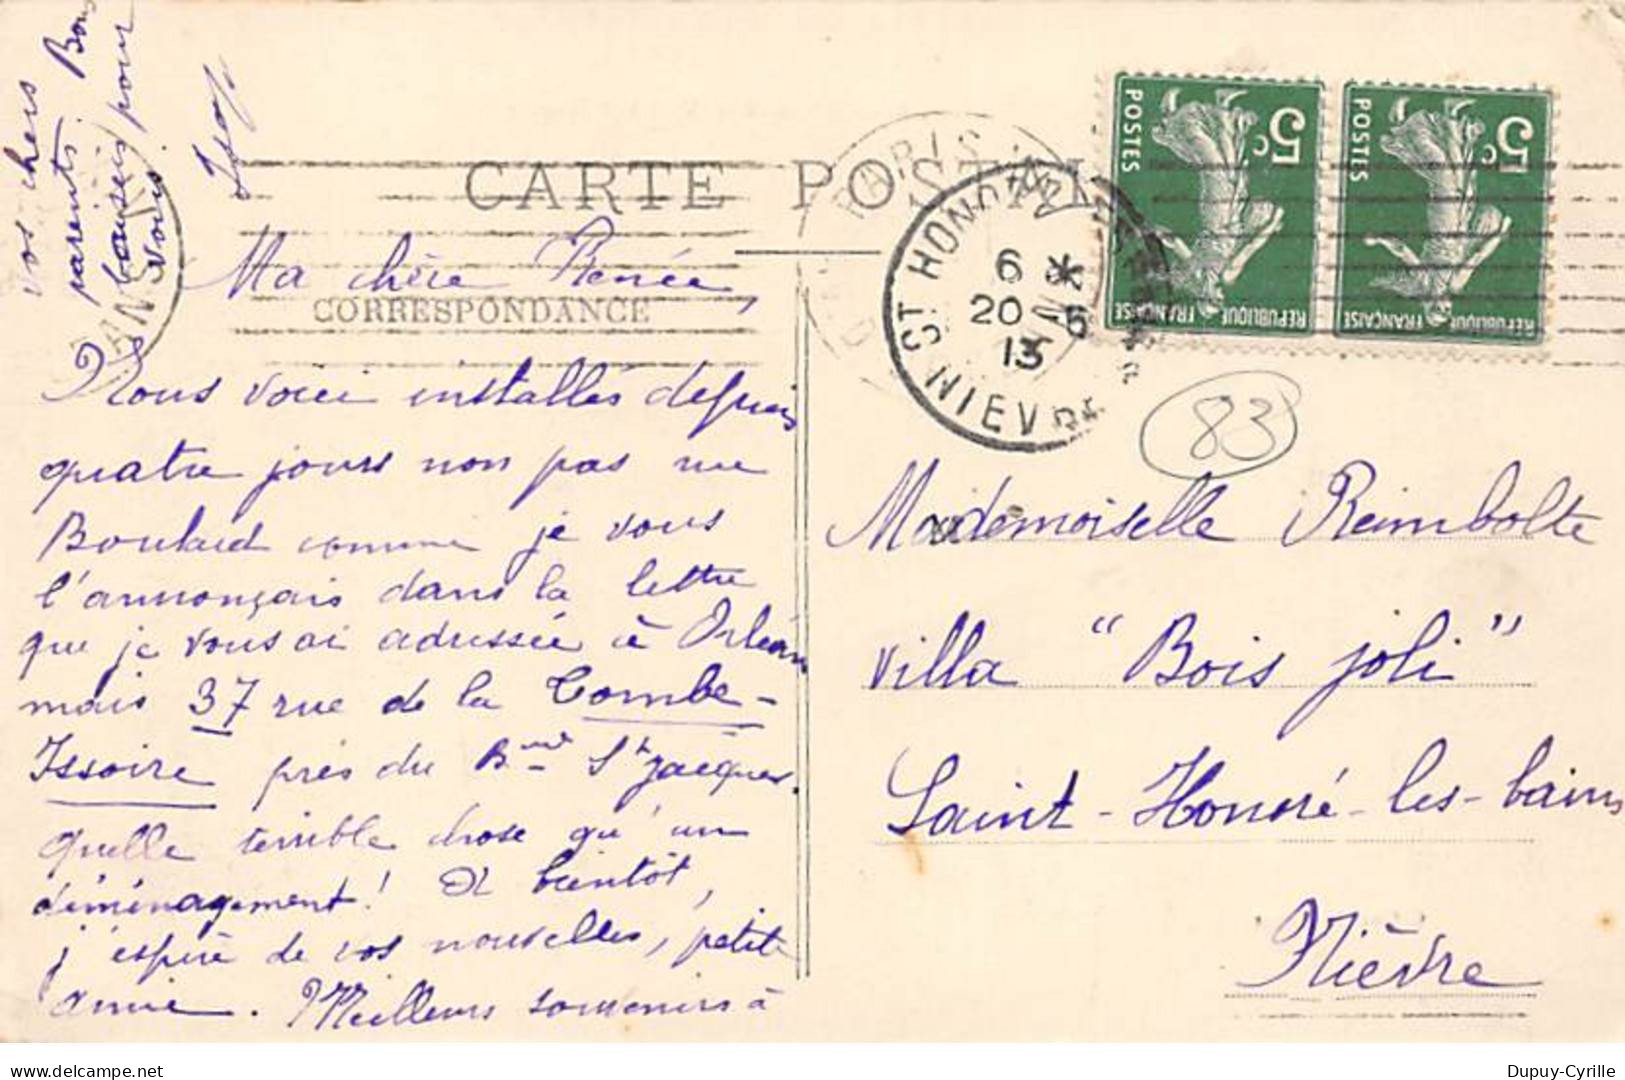 CARTE POSTALE
CORRESPONDANCE
Ma chère Renée,
Nous voici installés depuis
quatre jours non pas rue
Boulard comme je vous
l'annonçais dans la lettre
que je vous ai adressée à Orléans
mais 37 rue de la Tombe-
Issoire près du Bard St Jacques.
Quelle terrible chose qu'un
déménagement! A bientôt,
j'espère de vos nouvelles, petite
amie. Meilleurs souvenirs à
vos chers
parents. Bons
baisers pour
vous.
POSTES
5c
REPUBLIQUE FRANÇAISE
POSTES
5c
REPUBLIQUE FRANÇAISE
PARIS
ST HONORE
6 *
20 - 5
13
NIEVRE
83
Mademoiselle Reimbolte
villa "Bois joli"
Saint-Honoré-les-bains
Nièvre
delcampe.net
Dupuy-Cyrille